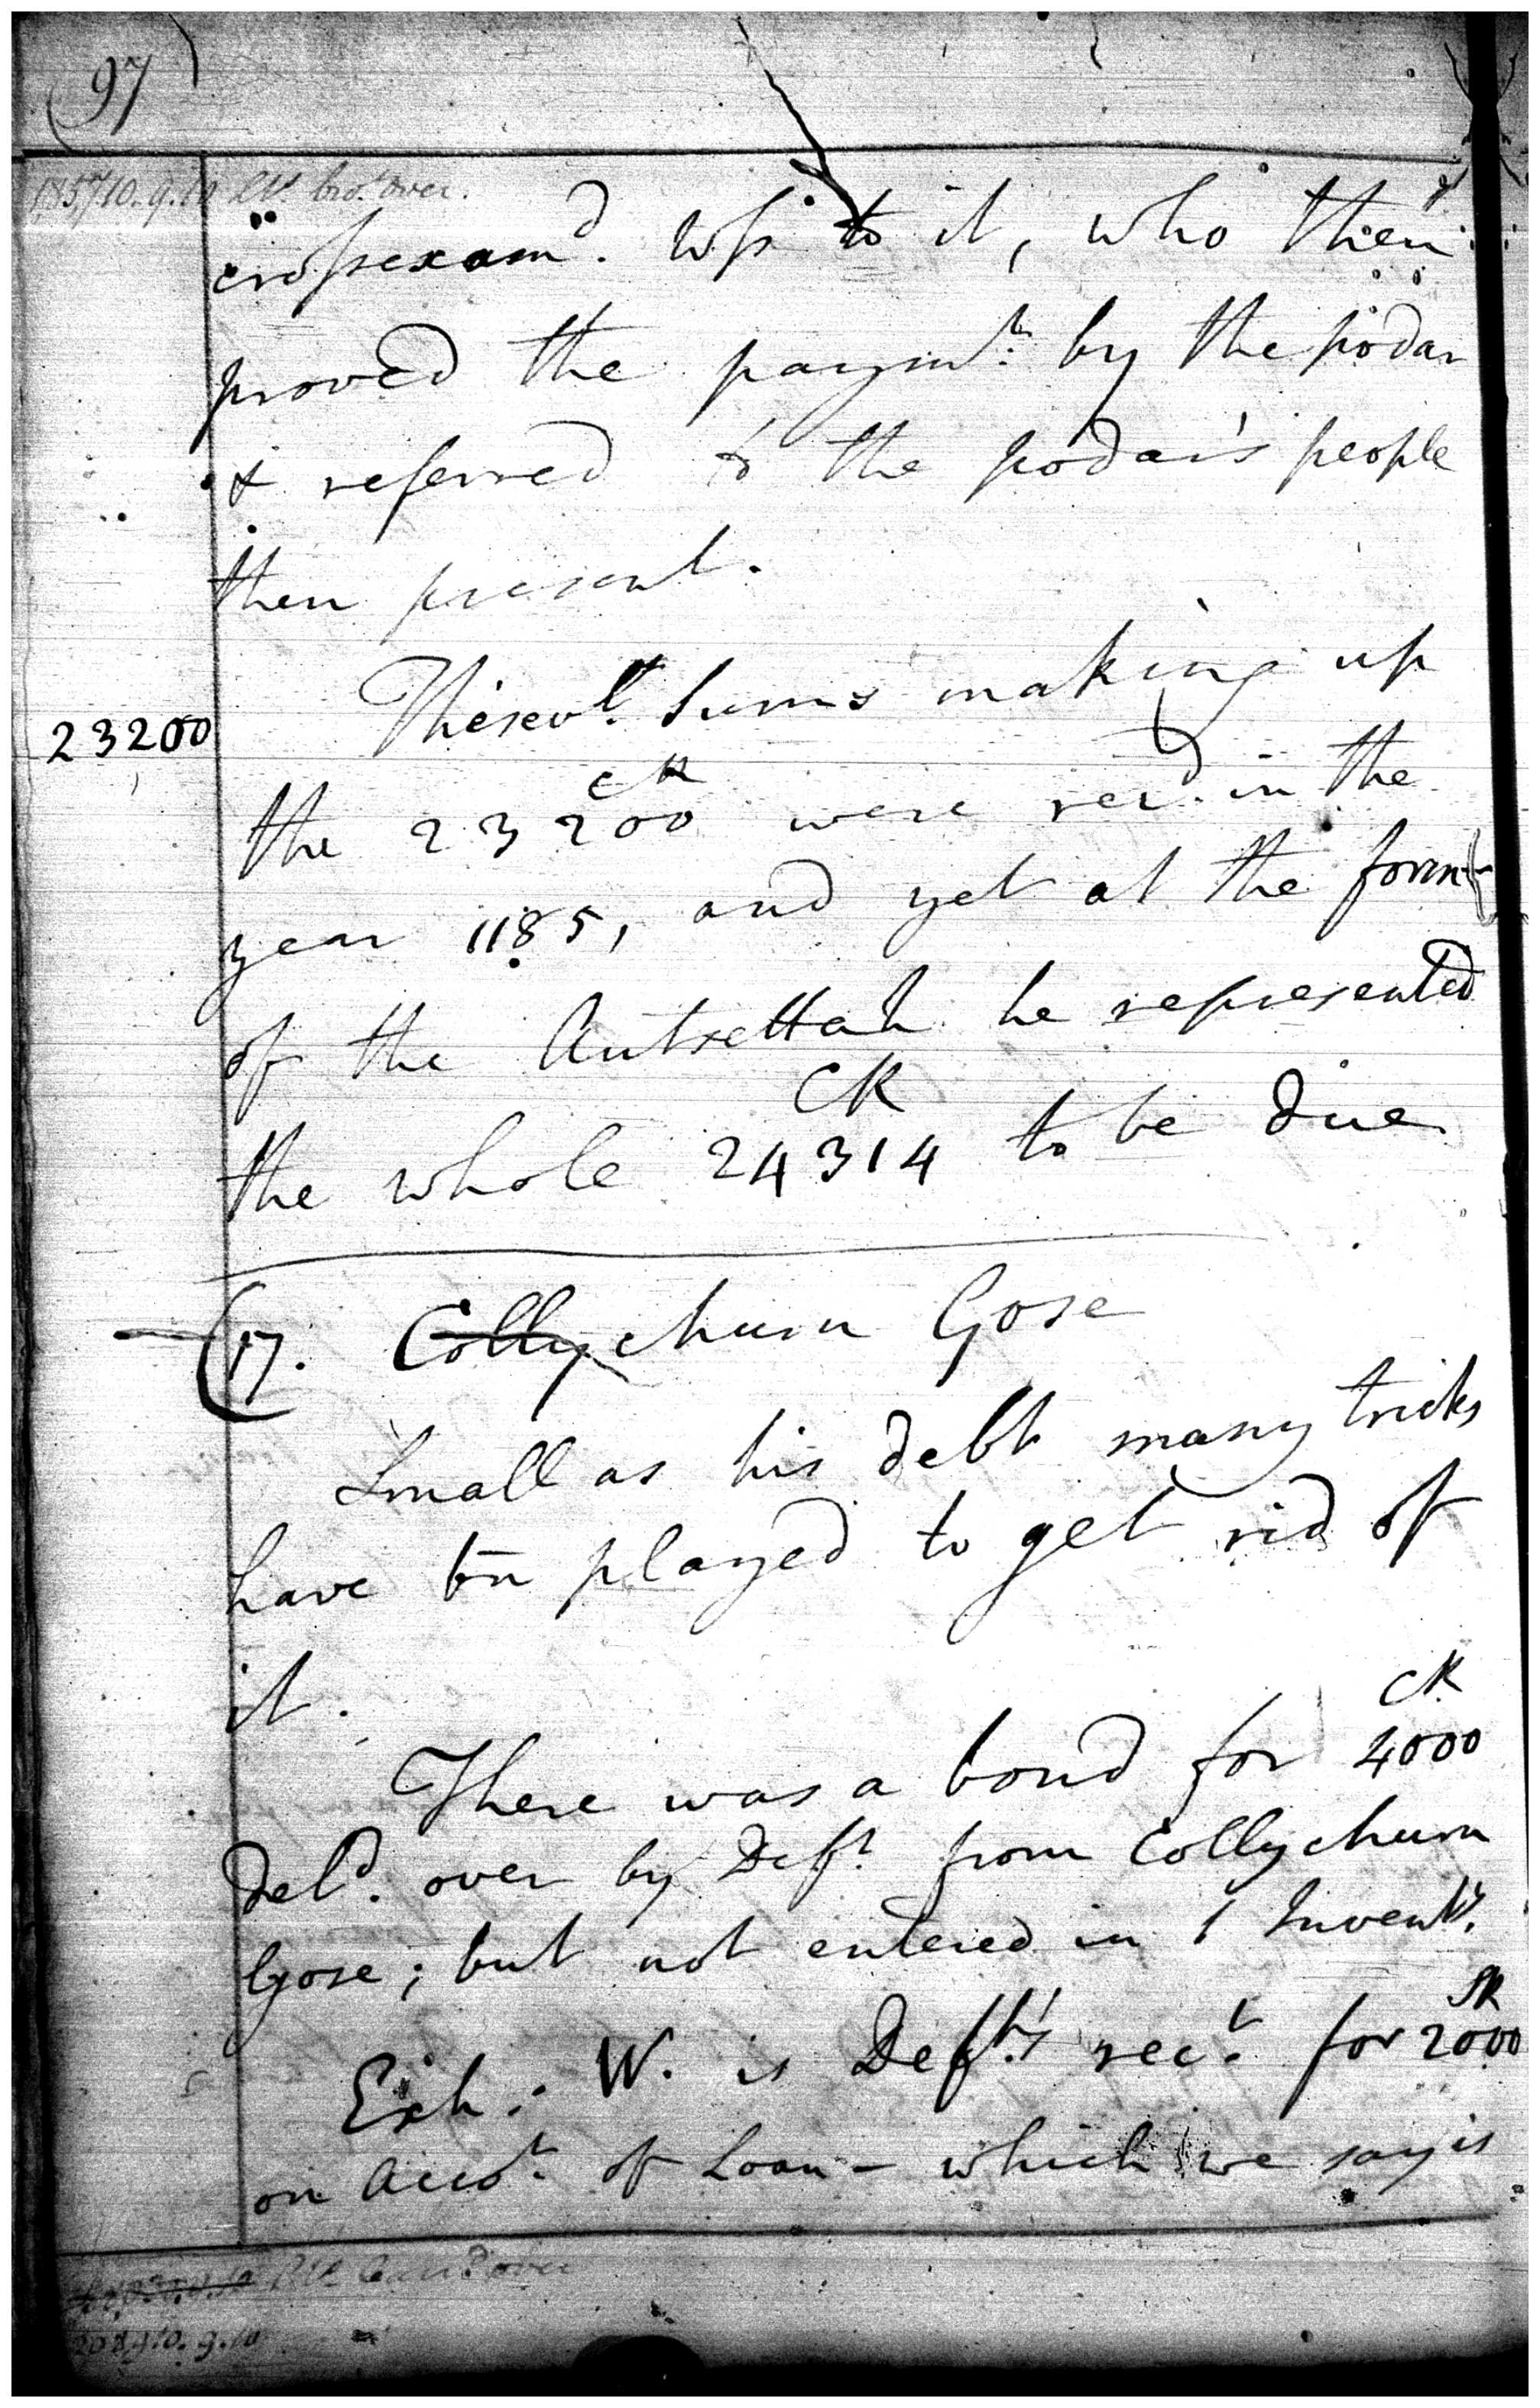 97
185710.9.10 Rs. bro.t over.
crossexam.d Wss to it, who then
proved the paym.t by the podar
& referred to the podar's people
then present.
These sev.l Sums making up
23200
CR
the 23200 were rec.d in the
year 1185, and yet at the form
of the Autsettah he represented
CR
the whole 24314 to be due
17. Collychurn Gose
Small as his debt many tricks
have bn played to get rid of
it.
CR
There was a bond for 4000
Del.d over by Def.t from Collychurn
Gose; but not entered in 1 Invent.y
SR
Exh: W. is Def.t's rec.t for 2000
on Acco.t of Loan - which we say is
Rs. Carr.d over